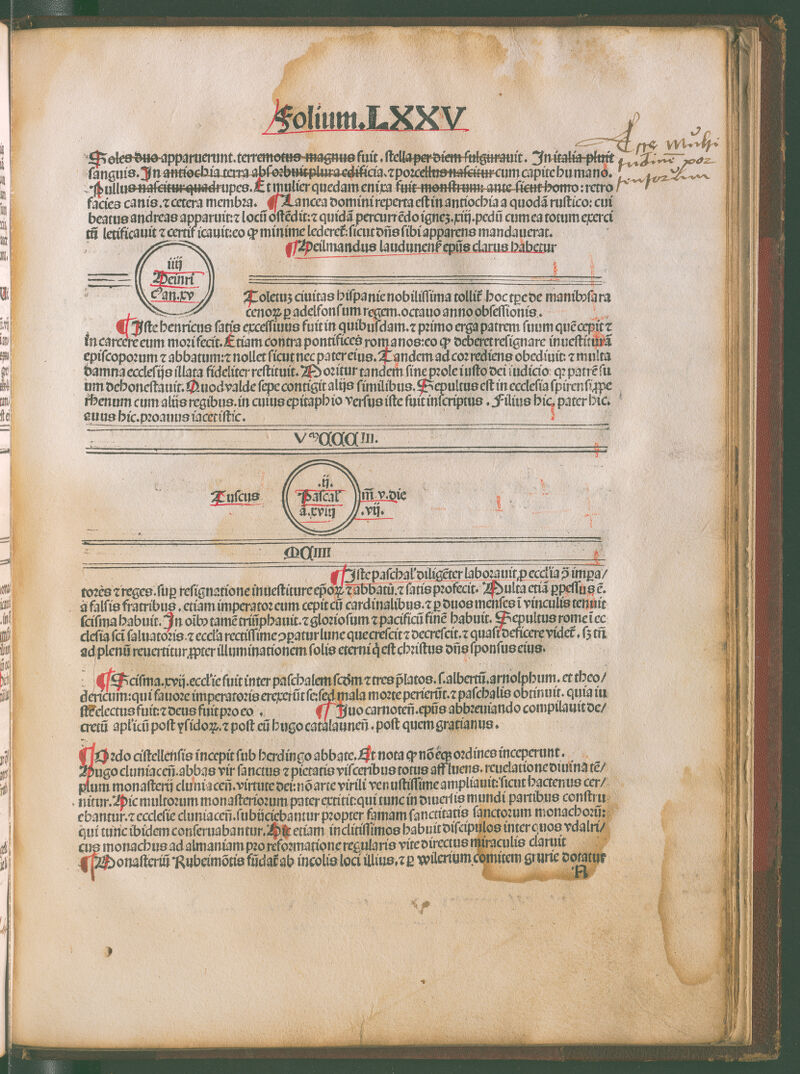 Folium.LXXV
Ecce multi
tudinē por
tentorum
Soles duo apparuerunt. terremotus magnus fuit. stella per diem fulgurauit. In italia pluit
sanguis. In antiochia terra absorbuit plura edificia. ⁊ porcellus nascitur cum capite humano.
Pullus nascitur quadrupes. Et mulier quedam enixa fuit monstrum: ante sicut homo: retro
facies canis. ⁊ cetera membra. ¶ Lancea domini reperta est in antiochia a quodā rustico: cui
beatus andreas apparuit: ⁊ locū ostēdit: ⁊ quidā percurrēdo ignez.xiij.pedū cum ea totum exerci
tū letificauit ⁊ certificauit: eo ꝙ minime lederet᷑: sicut dn̄s sibi apparens mandauerat.
¶ Heilmandus laudunenẜ ep̄us clarus habetur
iiij
Heinri
cꝰ an.xv
Toletuz ciuitas hispanie nobilissima tollit᷑ hoc tꝑe de manibꝰ sara
cenoꝝ ꝑ adelfonsum regem. octauo anno obsessionis.
¶ Iste henricus satis excessiuus fuit in quibusdam. ⁊ primo erga patrem suum quē cepit ⁊
in carcere eum mori fecit. Etiam contra pontifices romanos: eo ꝙ deberet resignare inuestiturā
episcoporum ⁊ abbatum: ⁊ nollet sicut nec pater eius. Tandem ad cor rediens obediuit: ⁊ multa
damna ecclesijs illata fideliter restituit. Moritur tandem sine prole iusto dei iudicio qꝛ patrē su
um dehonestauit. Quod valde sepe contigit alijs similibus. Sepultus est in ecclesia spirensi ꝓpe
rhenum cum alijs regibus. in cuius epitaphio versus iste fuit inscriptus. Filius hic. pater hic.
auus hic. proauus iacet istic.
Tuscus
.ij.
Pascal᷑
a.xviij
m̄.v.die
.vij.
¶ Iste paschal᷑ diligēter laborauit, ꝓ eccl̓ia ꝯ̄ impꝑa/
tores ⁊ reges. suꝑ resignatione inuestiture ep̄oꝝ ⁊ abbatū. ⁊ satis profecit. Multa etiā ꝑpessus ē.
a falsis fratribus, etiam imperator eum cepit cū cardinalibus. ⁊ ꝑ duos menses ī vinculis tenuit
scisma habuit. In oībꝰ tamē triūphauit. ⁊ gloriosum ⁊ pacificū finē habuit. Sepultus rome ī ec
clesia sc̄i saluatoris. ⁊ eccl̓a rectissime ꝯparatur lune que crescit ⁊ decrescit. ⁊ quasi deficere videt᷑. sꝫ tn̄
ad plenū reuertitur ꝓpter illuminationem solis eterni q̇ est christus dn̄s sponsus eius.
¶ Scisma.xvij.eccl̓ie fuit inter paschalem scd̄m ⁊ tres p̄latos. s. albertū. arnolphum. et theo/
dericum: qui fauore imperatoris erexerūt se: sed mala morte perierūt. ⁊ paschalis obtinuit. quia iu
ste electus fuit: ⁊ deus fuit pro eo. ¶ Iuo carnoteñ. ep̄us abbreuiando compilauit de/
cretū apl̓icū post ysidoꝝ. ⁊ post eū hugo catalauneñ. post quem gratianus.
¶ Ordo cistellensis incepit sub herdingo abbate. Et nota ꝙ nō eq̄ꝫ ordines inceperunt.
Hugo cluniaceñ. abbas vir sanctus ⁊ pietatis visceribus totus affluens. reuelatione diuina tē/
plum monasterij cluniaceñ. virtute dei: nō arte virili venustissime ampliauit: sicut hactenus cer/
nitur. Hic multorum monasteriorum pater extitit: qui tunc in diuersis mundi partibus constru
ebantur. ⁊ ecclesie cluniaceñ. subijciebantur propter famam sanctitatis sanctorum monachorū:
qui tunc ibidem conseruabantur. Hic etiam inclitissimos habuit discipulos inter quos vdalri/
cus monachus ad almaniam pro reformatione regularis vite directus miraculis claruit
¶ Monasteriū Rubeimōtis fūdat᷑ ab incolis loci illius. ⁊ ꝑ wilerium comitem grurie dotatur